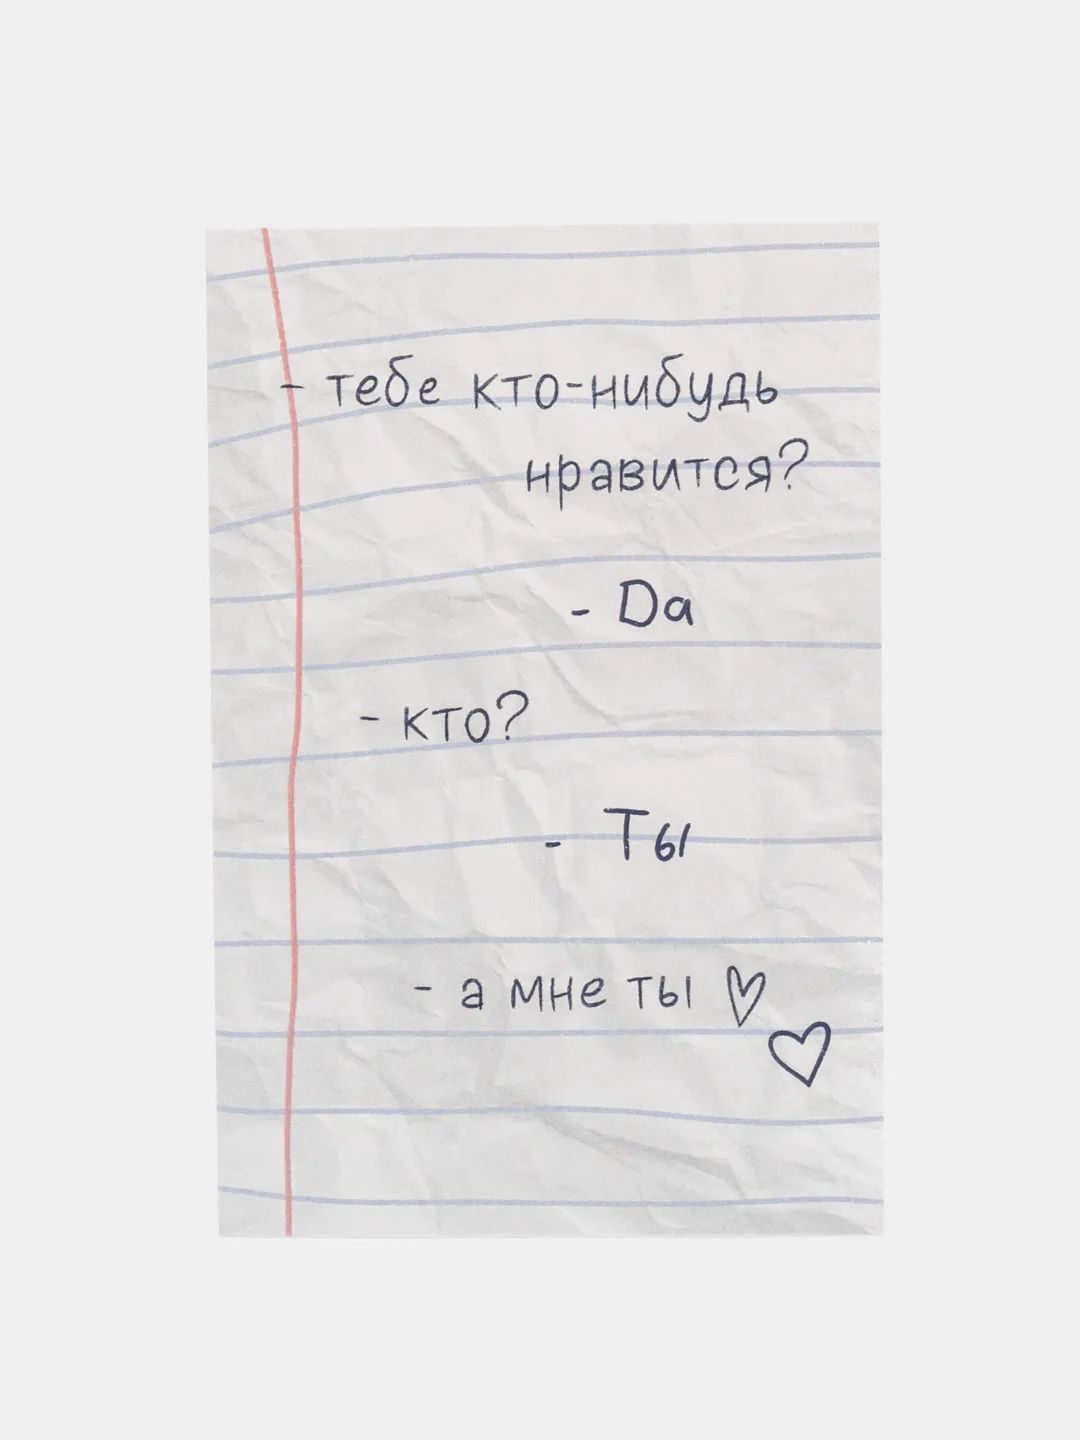 - тебе кто-нибудь
нравится?
- Да
- кто?
- Ты
- а мне ты ♡
♡